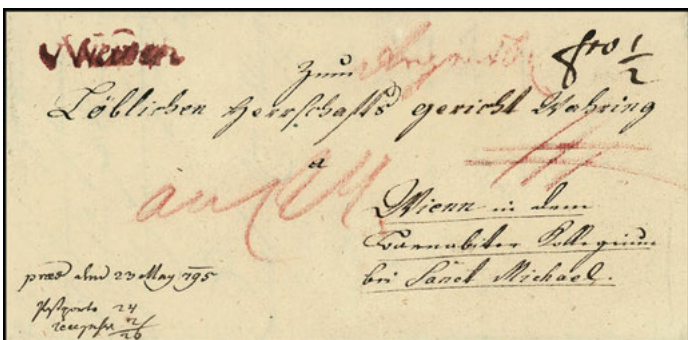 v Wienn
fro 1/2
Zum
Löblichen Herrschafts gericht Wahring
a
Wienn in dem
Barnabiter Kollegium
bei Sanct Michael.
præs den 23 May 795
Postporto 24
2
26